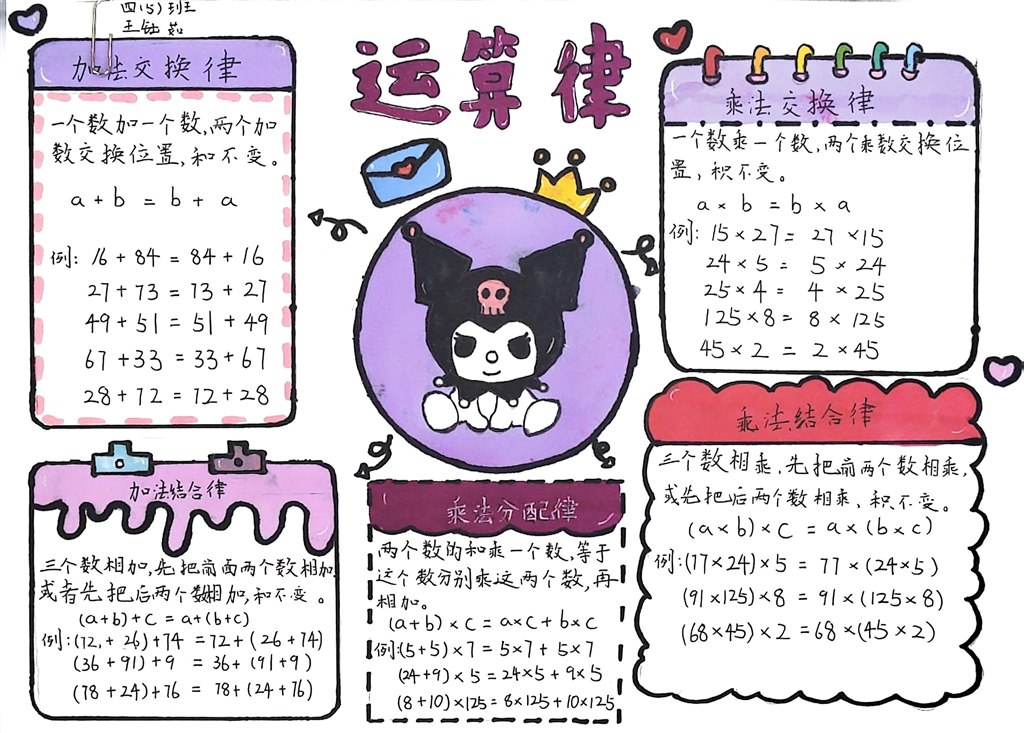 四(5)班
王钰茹
运算律
加法交换律
一个数加一个数,两个加
数交换位置,和不变。
a+b = b+a
例: 16+84 = 84+16
27+73 = 73+27
49+51 = 51+49
67+33 = 33+67
28+72 = 72+28
乘法交换律
一个数乘一个数,两个乘数交换位
置,积不变。
a×b = b×a
例: 15×27 = 27×15
24×5 = 5×24
25×4 = 4×25
125×8 = 8×125
45×2 = 2×45
加法结合律
三个数相加,先把前面两个数相加
或者先把后两个数相加,和不变。
(a+b)+c = a+(b+c)
例:(72+26)+74 = 72+(26+74)
(36+91)+9 = 36+(91+9)
(78+24)+76 = 78+(24+76)
乘法分配律
两个数的和乘一个数,等于
这个数分别乘这两个数,再
相加。
(a+b)×c = a×c+b×c
例:(5+5)×7 = 5×7+5×7
(24+9)×5 = 24×5+9×5
(8+10)×125 = 8×125+10×125
乘法结合律
三个数相乘,先把前两个数相乘,
或先把后两个数相乘,积不变。
(a×b)×c = a×(b×c)
例:(77×24)×5 = 77×(24×5)
(91×125)×8 = 91×(125×8)
(68×45)×2 = 68×(45×2)